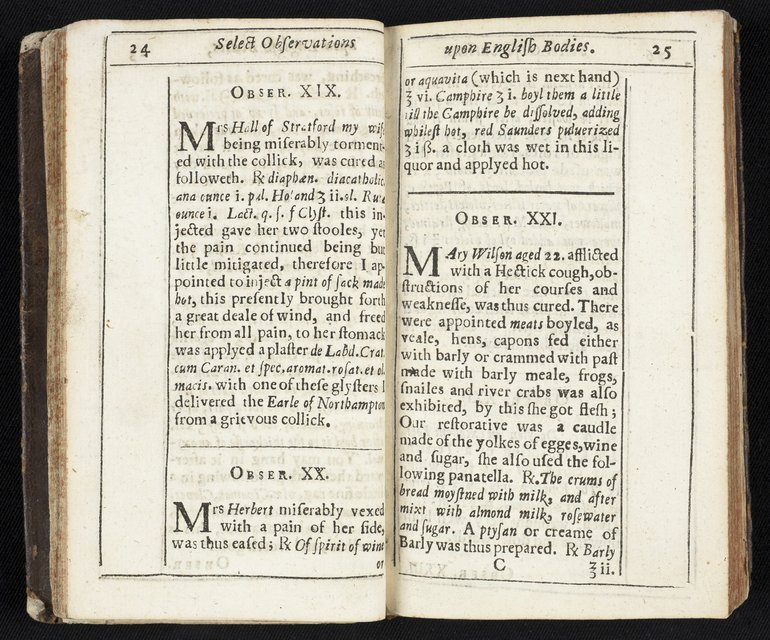 24
Select Obſervations
OBSER. XIX.
Mrs Hall of Stratford my wife
being miſerably torment-
ed with the collick, was cured as
followeth. ℞ diaphæn. diacatholic.
ana ounce i. pul. Hol and ʒ ii. ol. Rutæ
ounce i. Lact. q. ſ. f Clyſt. this in-
jected gave her two ſtooles, yet
the pain continued being but
little mitigated, therefore I ap-
pointed to inject a pint of ſack made
hot, this preſently brought forth
a great deale of wind, and freed
her from all pain, to her ſtomack
was applyed a plaſter de Labd. Crat.
cum Caran. et ſpec. aromat. roſat. et ol.
macis. with one of theſe glyſters I
delivered the Earle of Northampton
from a grievous collick.
OBSER. XX.
Mrs Herbert miſerably vexed
with a pain of her ſide,
was thus eaſed; ℞ Of ſpirit of wine
or
upon Engliſh Bodies.
25
or aquavita (which is next hand)
℥ vi. Camphire ʒ i. boyl them a little
till the Camphire be diſſolved, adding
whileſt hot, red Saunders pulverized
ʒ i ß. a cloth was wet in this li-
quor and applyed hot.
OBSER. XXI.
MAry Wilſon aged 22. afflicted
with a Hectick cough, ob-
ſtructions of her courſes and
weakneſſe, was thus cured. There
were appointed meats boyled, as
veale, hens, capons fed either
with barly or crammed with paſt
made with barly meale, frogs,
ſnailes and river crabs was alſo
exhibited, by this ſhe got fleſh;
Our reſtorative was a caudle
made of the yolkes of egges, wine
and ſugar, ſhe alſo uſed the fol-
lowing panatella. ℞. The crums of
bread moyſtned with milk, and after
mixt with almond milk, roſewater
and ſugar. A ptyſan or creame of
Barly was thus prepared. ℞ Barly
C
℥ii.